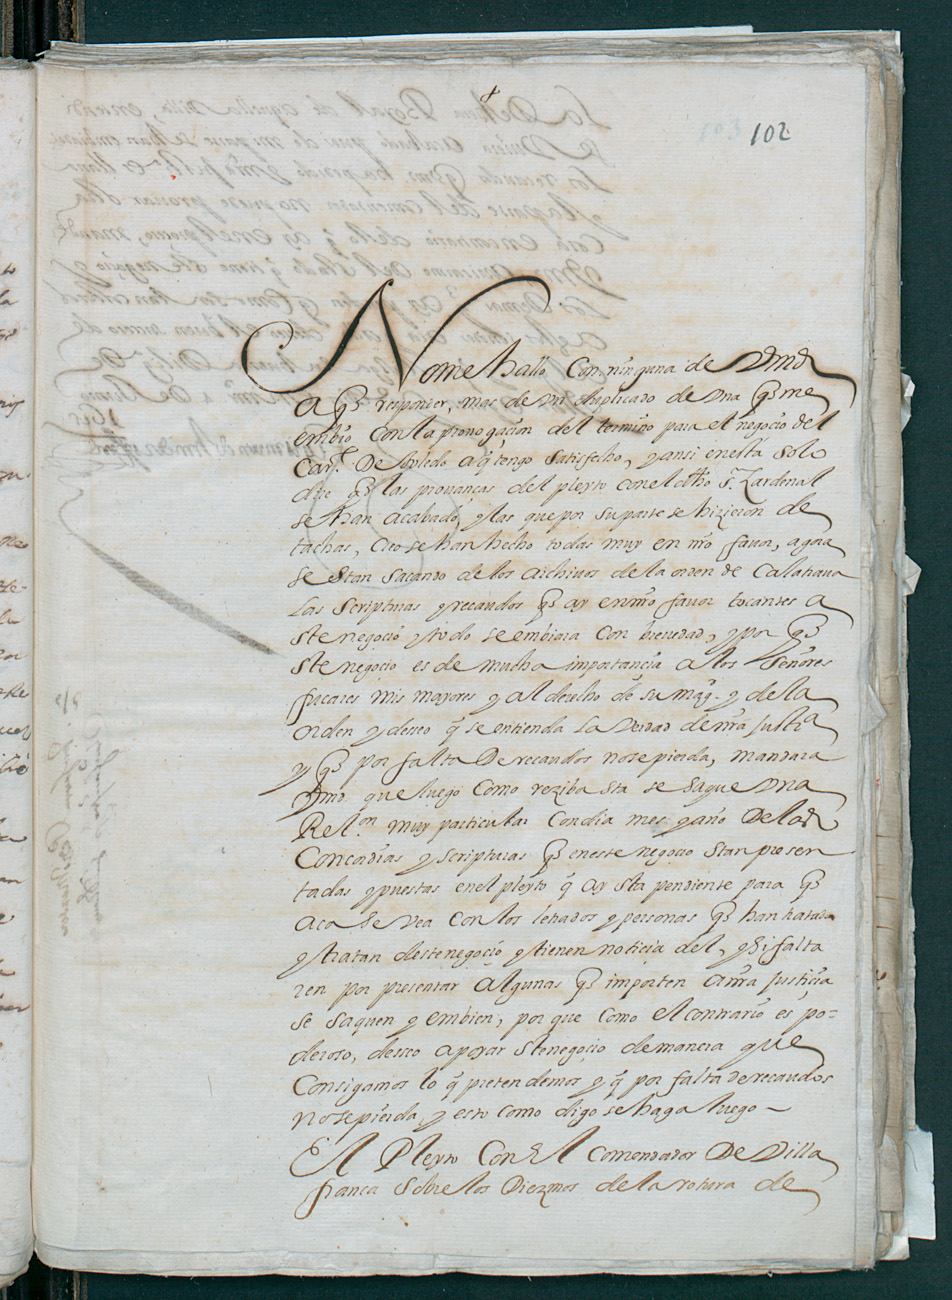 102
No me hallo con ninguna de Vmd
a q̃ responder, mas de un duplicado de una q̃ me
embio con la prorrogacion del termino para el negocio del
Car.l De Toledo a q̃ tengo satisfecho, y ansi en esta solo
dire q̃ las provanças del pleyto con el dho s.r Cardenal
se han acabado, y las que por su parte se hizieron de
tachas, creo se han hecho todas muy en nr̃o favor, agora
se stan sacando de los Archivos de la orden de Calatrava
las scripturas y recaudos q̃ ay en nr̃o favor tocantes a
ste negocio y todo se embiara con brevedad, y por q̃
ste negocio es de mucha importancia a los Señores
fucares mis mayores y al derecho de su mag.d y de la
orden y deseo q̃ se entienda la verdad de nr̃a justi.a
y q̃ por falta De recaudos no se pierda, mandara
Vmd. que luego como reziba sta se saque una
Rel.on muy particular con dia mes y año De las
Concordias y scripturas q̃ en este negocio stan presen
tadas y puestas en el pleyto q̃ ay sta pendiente para q̃
aca se vea con los letrados y personas q̃ han tratado
y tratan deste negocio y tienen noticia del, y si falta
ren por presentar algunas q̃ importen a nr̃a justicia
se saquen y embien, por que como el contrario es po=
deroso, deseo apoyar ste negocio de manera que
Consigamos lo q̃ pretendemos y q̃ por falta de recaudos
no se pierda, y esto como digo se haga luego ~
El Pleyto Con El Comendador De Villa
franca sobre los Diezmos de la rotura de